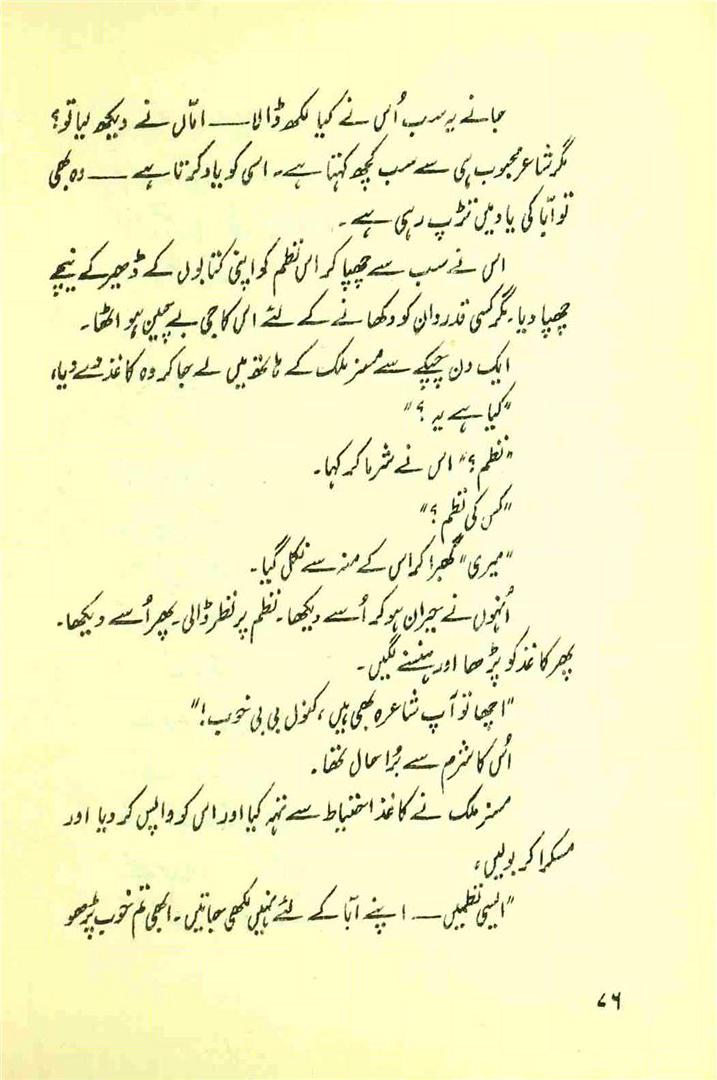 جانے یہ سب اُس نے کیا لکھ ڈالا — امّاں نے دیکھ لیا تو؟
مگر شاعر محبوب ہی سے سب کچھ کہتا ہے۔ اسی کو یاد کرتا ہے — وہ بھی
تو ابّا کی یاد میں تڑپ رہی ہے۔
اس نے سب سے چھپا کر اس نظم کو اپنی کتابوں کے ڈھیر کے نیچے
چھپا دیا۔ مگر کسی قدردان کو دکھانے کے لئے اس کا جی بے چین ہو اٹھا۔
ایک دن چپکے سے مسز ملک کے ہاتھ میں لے جا کر وہ کاغذ دے دیا،
"کیا ہے یہ؟"
"نظم؟" اس نے شرما کر کہا۔
"کس کی نظم؟"
"میری" گھبرا کر اس کے منہ سے نکل گیا۔
اُنہوں نے حیران ہو کر اُسے دیکھا۔ نظم پر نظر ڈالی۔ پھر اُسے دیکھا۔
پھر کاغذ کو پڑھا اور ہنسنے لگیں۔
"اچھا تو آپ شاعرہ بھی ہیں، کنول بی بی خوب!"
اُس کا شرم سے بُرا حال تھا۔
مسز ملک نے کاغذ احتیاط سے تہہ کیا اور اس کو واپس کر دیا اور
مسکرا کر بولیں،
"ایسی نظمیں — اپنے ابّا کے لئے نہیں لکھی جاتیں۔ ابھی تم خوب پڑھو
۷۶